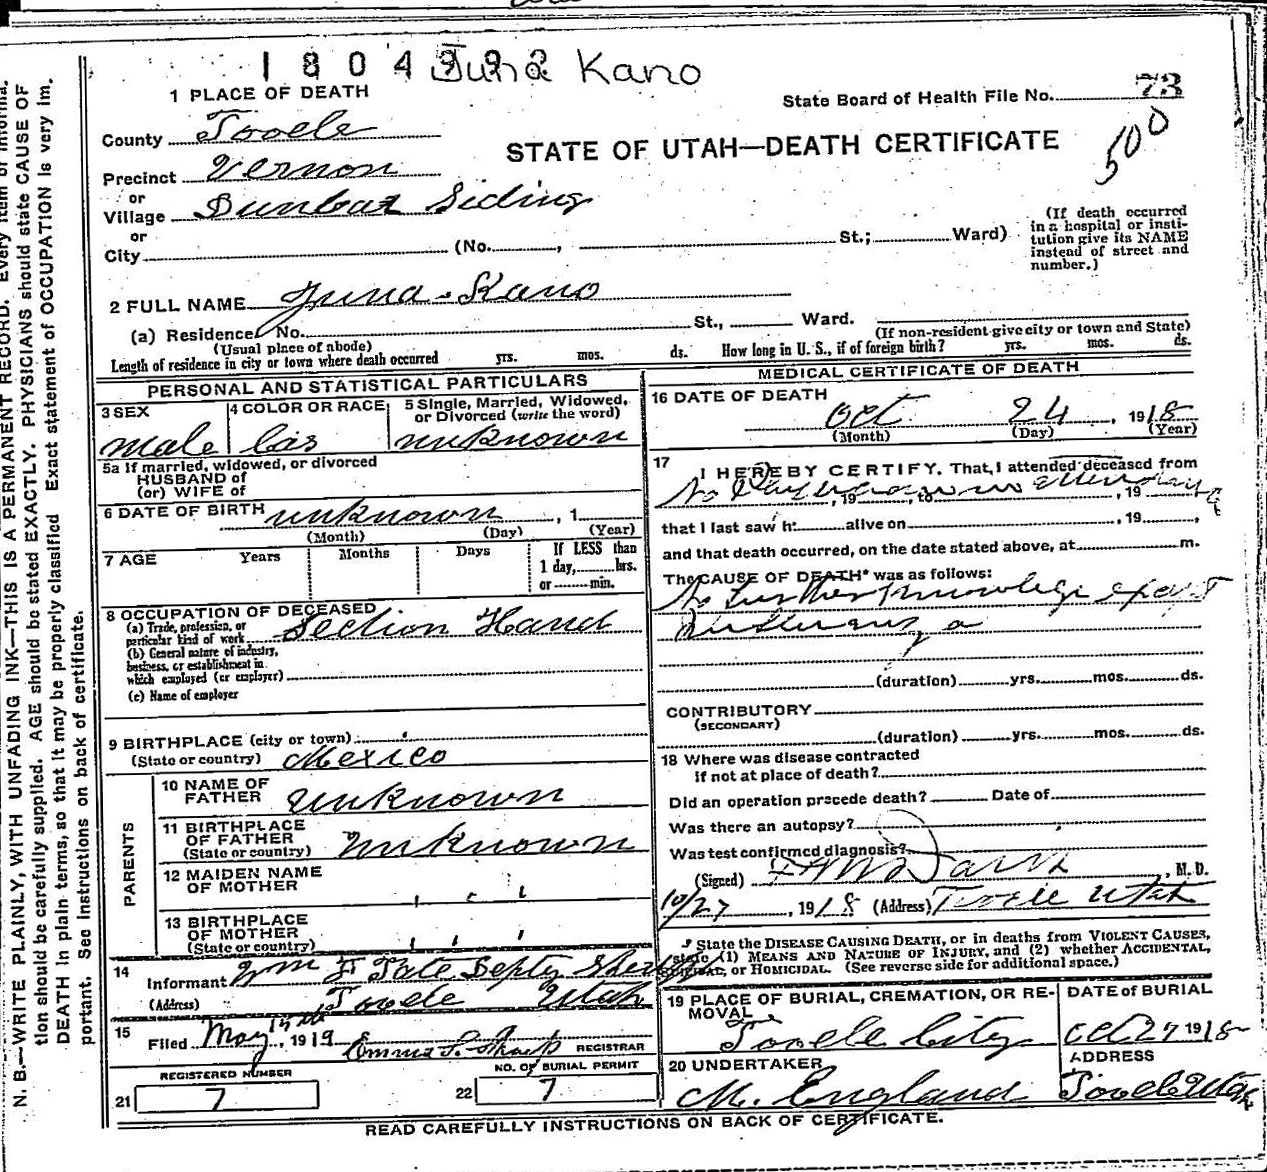 1804392 Juna Kano
1 PLACE OF DEATH
State Board of Health File No. 73
500
County Tooele
STATE OF UTAH—DEATH CERTIFICATE
Precinct Vernon
or
Village Dunbar Siding
or
City (No. , St.; Ward)
(If death occurred
in a hospital or insti-
tution give its NAME
instead of street and
number.)
2 FULL NAME Juna Kano
(a) Residence No. St., Ward.
(Usual place of abode) (If non-resident give city or town and State)
Length of residence in city or town where death occurred yrs. mos. ds. How long in U. S., if of foreign birth? yrs. mos. ds.
PERSONAL AND STATISTICAL PARTICULARS
3 SEX 4 COLOR OR RACE 5 Single, Married, Widowed,
or Divorced (write the word)
male unknown
5a If married, widowed, or divorced
HUSBAND of
(or) WIFE of
6 DATE OF BIRTH unknown , 1
(Month) (Day) (Year)
7 AGE Years Months Days If LESS than
1 day, hrs.
or min.
8 OCCUPATION OF DECEASED
(a) Trade, profession, or
particular kind of work Section Hand
(b) General nature of industry,
business, or establishment in
which employed (or employer)
(c) Name of employer
9 BIRTHPLACE (city or town)
(State or country) Mexico
PARENTS
10 NAME OF
FATHER unknown
11 BIRTHPLACE
OF FATHER unknown
(State or country)
12 MAIDEN NAME
OF MOTHER
13 BIRTHPLACE
OF MOTHER
(State or country)
14
Informant Wm F Tate Depty
(Address) Tooele Utah
15
Filed May 15th, 1919 Emma S. REGISTRAR
REGISTERED NUMBER NO. OF BURIAL PERMIT
21 7 22 7
MEDICAL CERTIFICATE OF DEATH
16 DATE OF DEATH
Oct 24, 1918
(Month) (Day) (Year)
17 I HEREBY CERTIFY, That, I attended deceased from
No in , 19 , to , 19
that I last saw h alive on , 19 ,
and that death occurred, on the date stated above, at m.
The CAUSE OF DEATH* was as follows:
No further knowledge except
Influenza
(duration) yrs. mos. ds.
CONTRIBUTORY
(SECONDARY)
(duration) yrs. mos. ds.
18 Where was disease contracted
if not at place of death?
Did an operation precede death? Date of
Was there an autopsy?
Was test confirmed diagnosis?
(Signed) , M. D.
10/27, 1918 (Address) Tooele Utah
State the DISEASE CAUSING DEATH, or in deaths from VIOLENT CAUSES,
state (1) MEANS AND NATURE OF INJURY, and (2) whether ACCIDENTAL,
SUICIDAL, or HOMICIDAL. (See reverse side for additional space.)
19 PLACE OF BURIAL, CREMATION, OR RE-
MOVAL
Tooele City
DATE of BURIAL
Oct 27 1918
20 UNDERTAKER
M. England
ADDRESS
Tooele Utah
READ CAREFULLY INSTRUCTIONS ON BACK OF CERTIFICATE.
N. B.—WRITE PLAINLY, WITH UNFADING INK—THIS IS A PERMANENT RECORD. Every item of informa-
tion should be carefully supplied. AGE should be stated EXACTLY. PHYSICIANS should state CAUSE OF
DEATH in plain terms, so that it may be properly classified. Exact statement of OCCUPATION is very im-
portant. See instructions on back of certificate.